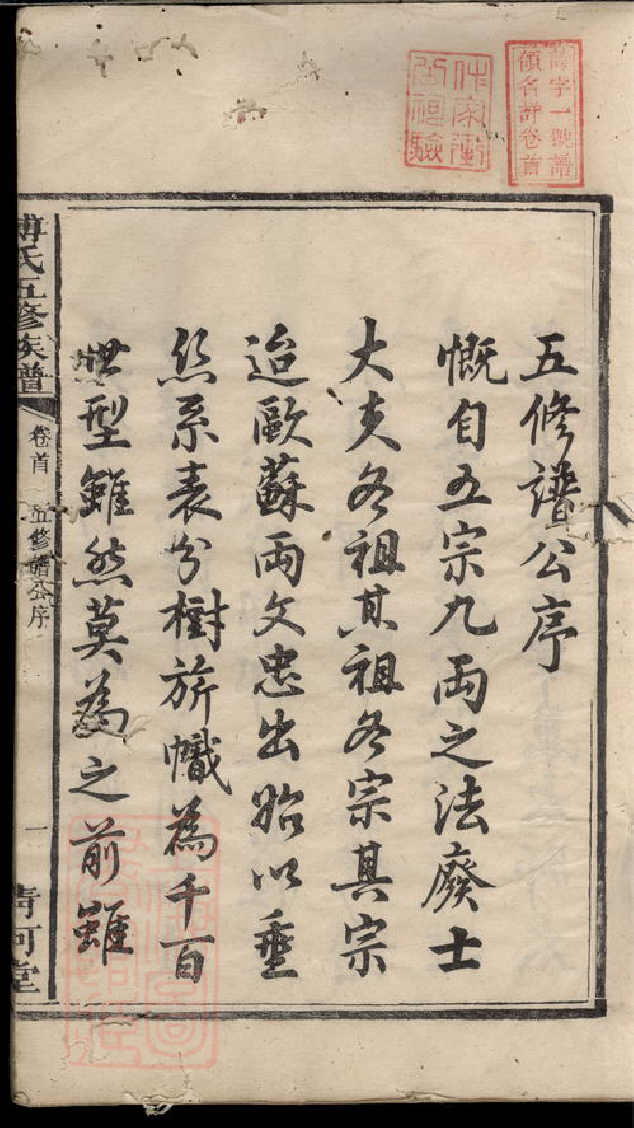 五修譜公序
慨自五宗九兩之法廢士
大夫各祖其祖各宗其宗
迨歐蘇兩文忠出始以垂
系表分樹旂幟為千百
世型雖然莫為之前雖
傅氏五修族譜
卷首
五修譜公序
一
清河堂
字一號譜
領名詳卷首